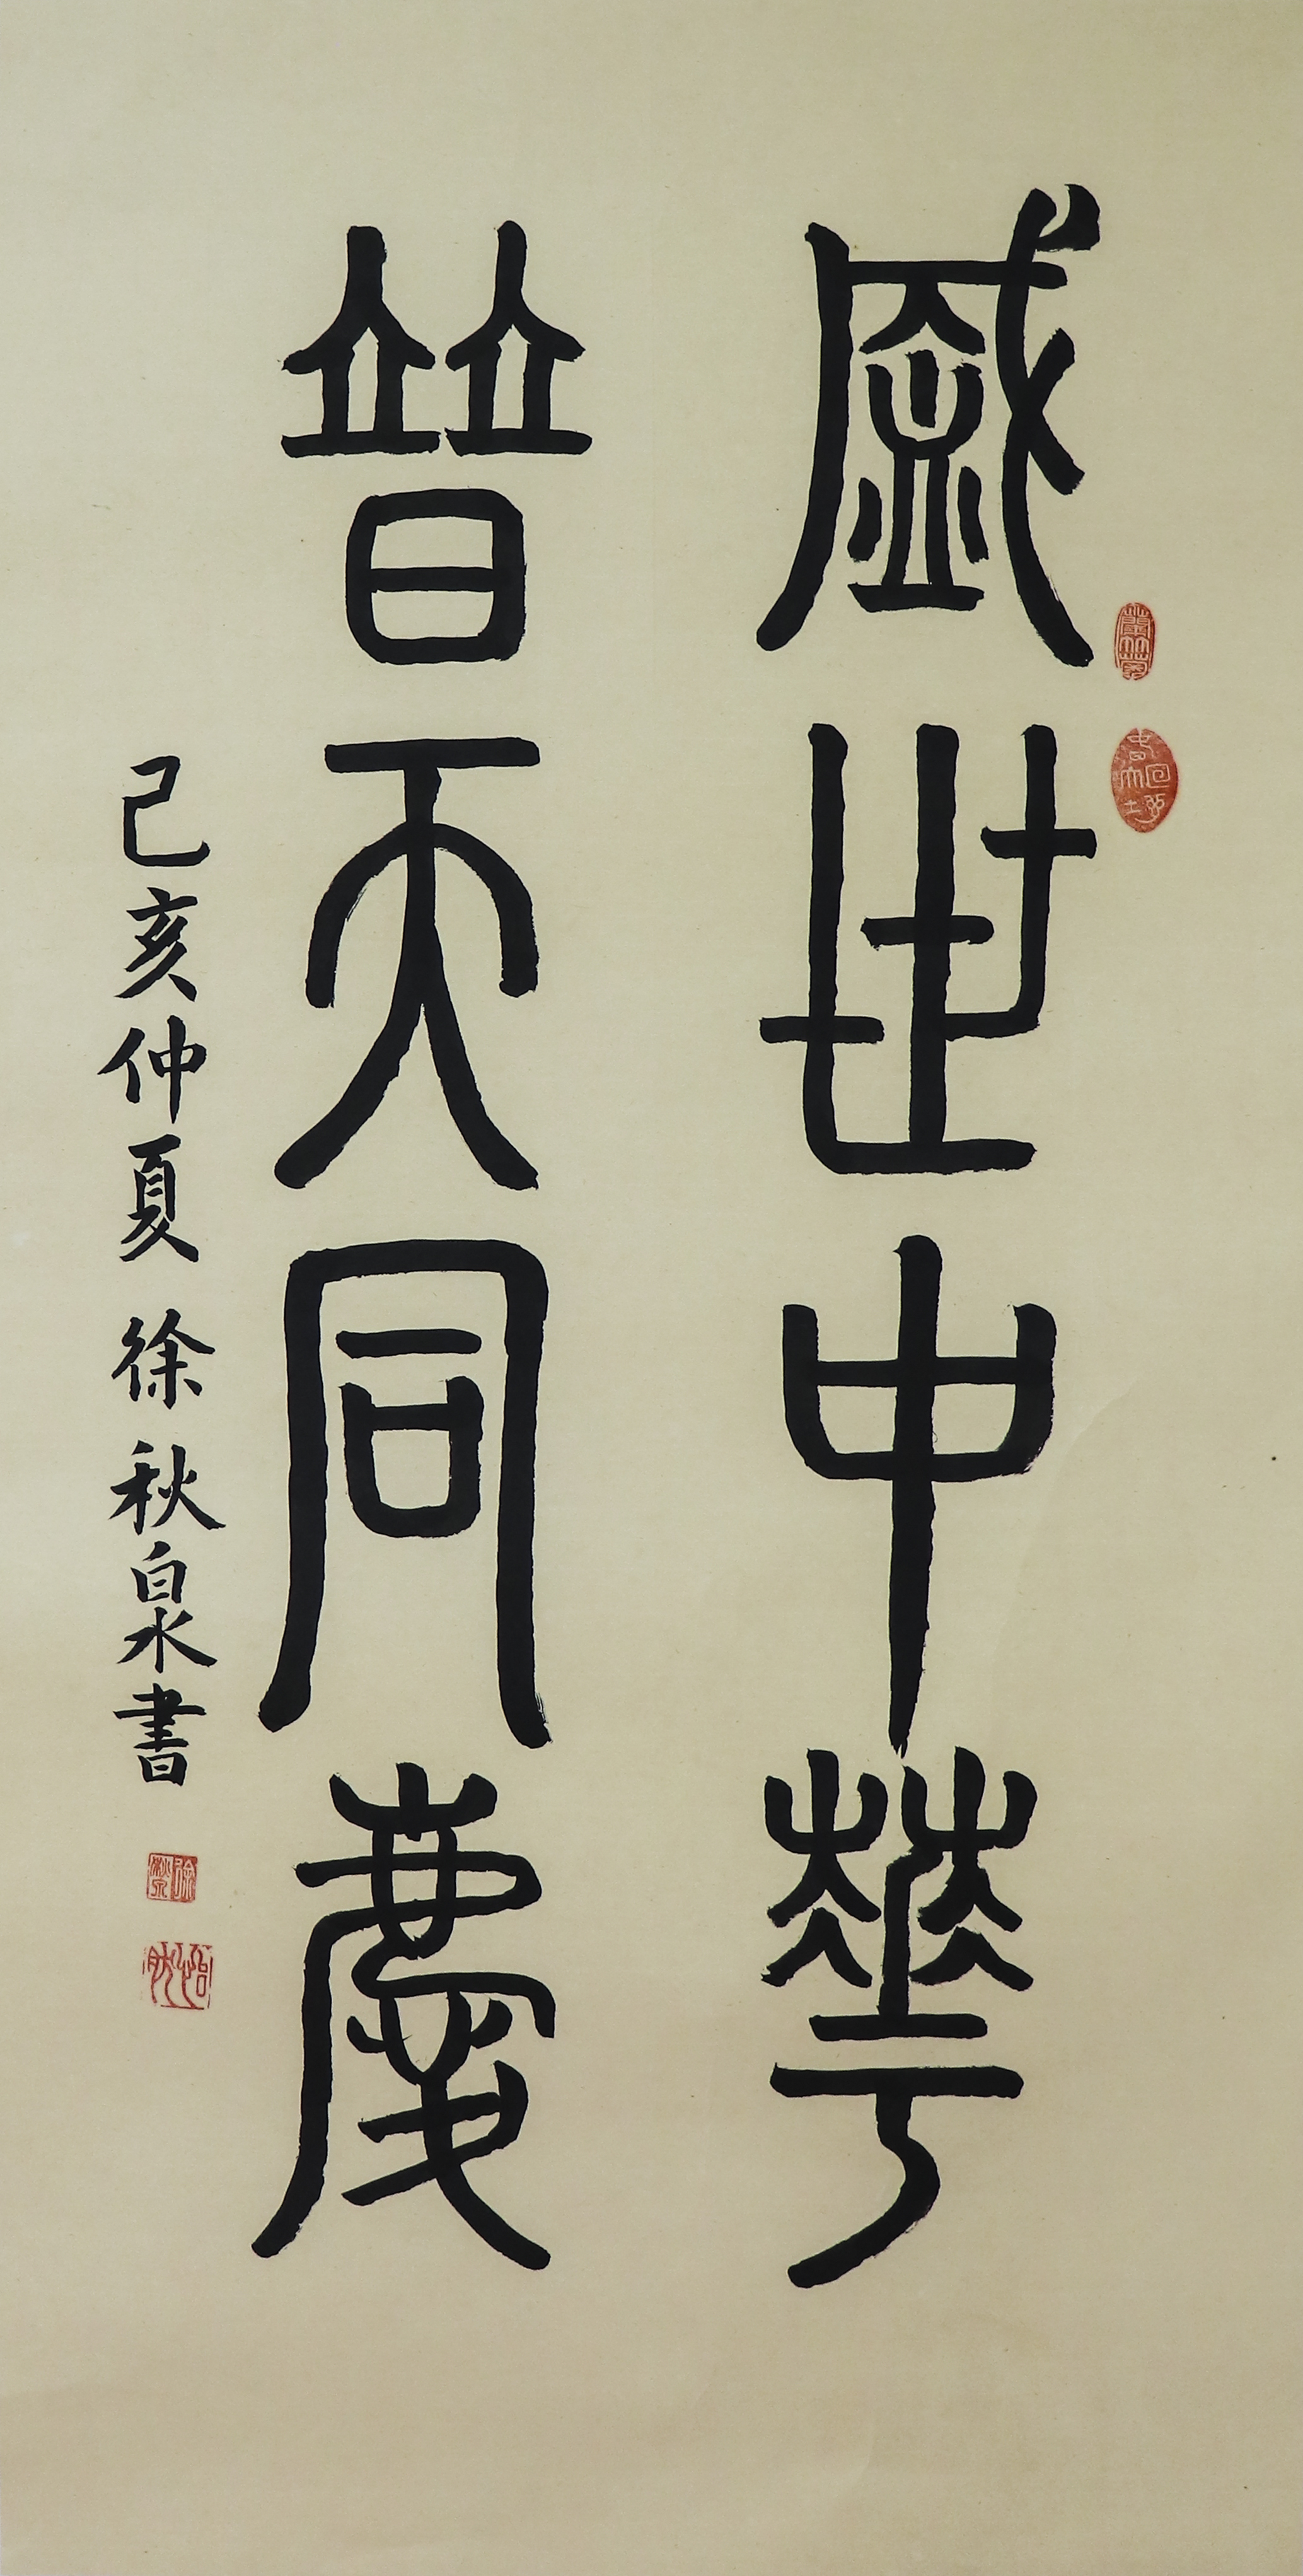 盛世中華
普天同慶
己亥仲夏 徐秋泉書